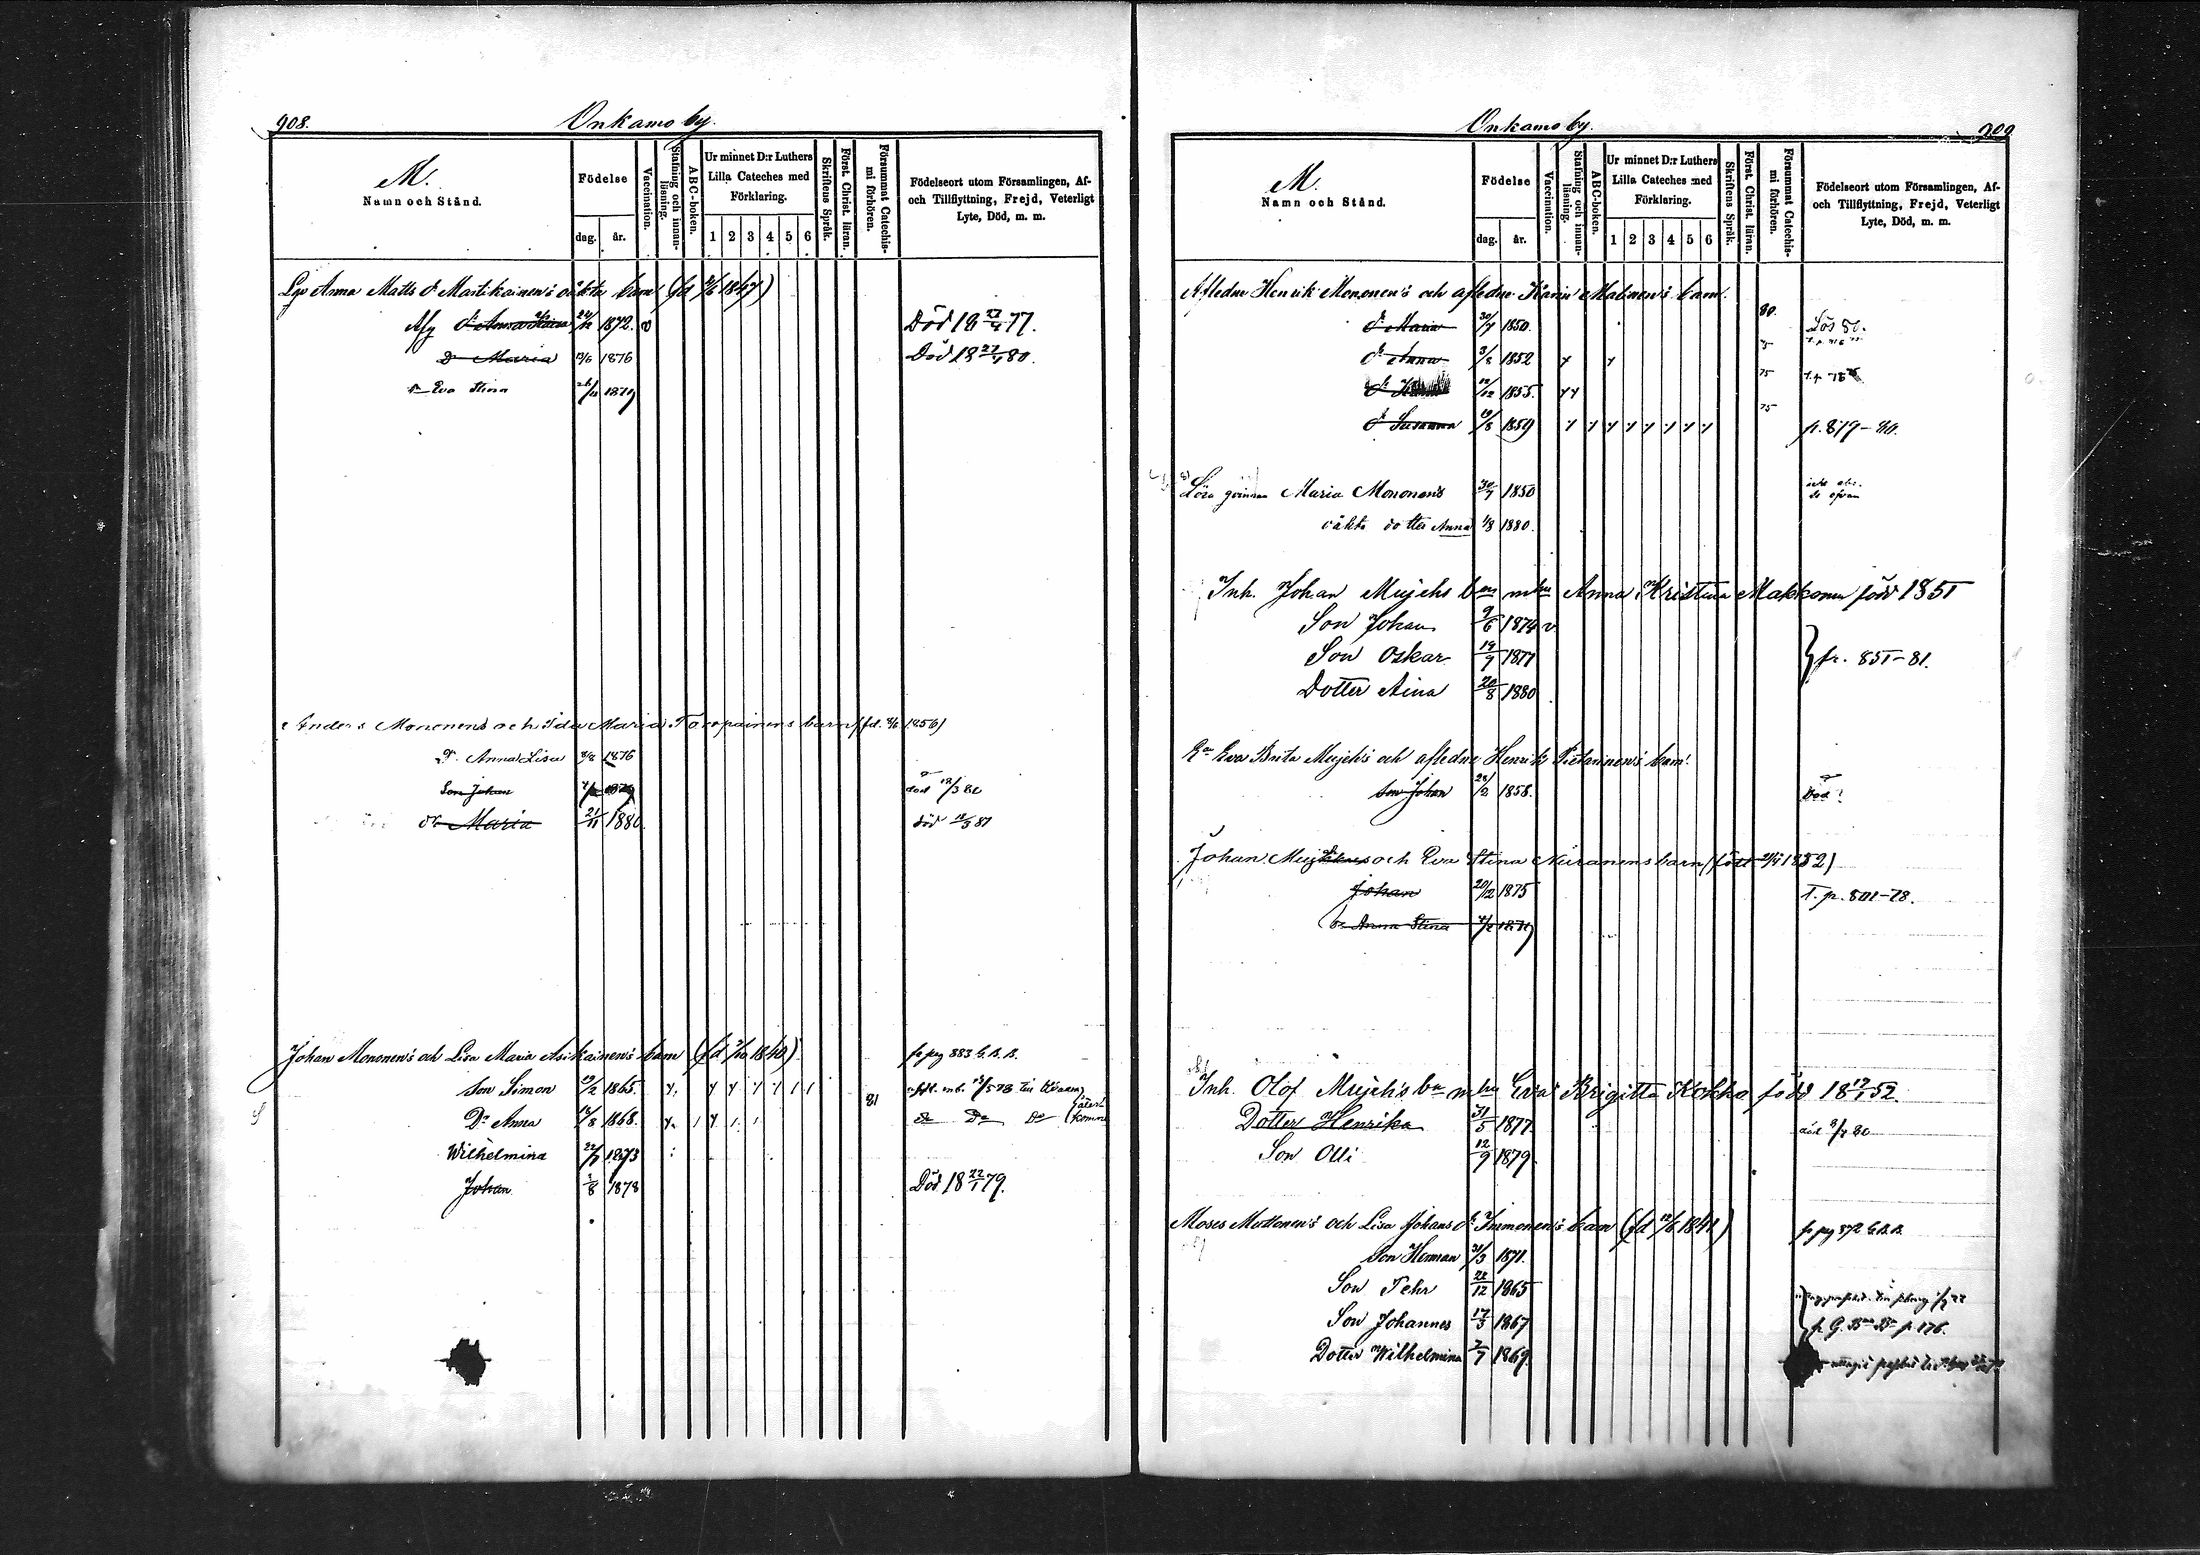 908.
Onkamo by.
M.
Namn och Stånd.
Födelse
dag. år.
Vaccination.
Stafning och innanläsning.
ABC-boken.
Ur minnet D:r Luthers
Lilla Cateches med
Förklaring.
1 2 3 4 5 6
Skriftens Språk.
Först. Christ. läran.
Försummat Catechismi förhören.
Födelseort utom Församlingen, Af-
och Tillflyttning, Frejd, Veterligt
Lyte, Död, m. m.
Anna Matts dr Martikainen's oäkta barn (fd 1847)
dr Anna 24/12 1872. v Död 18 23/4 77.
Dr Maria 13/6 1876 Död 18 27/4 80.
dr Eva Stina 26/11 1879
Anders Mononens och Ida Maria Toropainens barn (fd. 1856)
Dr. Anna Lisa 8/8 1876
Son Johan 1879 död 12/3 80
dr Maria 21/11 1880 död 12/3 81
Johan Mononen's och Lisa Maria Asikainen's barn (fd 1840) fr pag 883 G. B. B.
Son Simon 19/2 1865.
Dr Anna 1868. 81 Do Do Do
Wilhelmina 1873
Johan 2/8 1878 Död 18 22/1 79.
909
Onkamo by.
M.
Namn och Stånd.
Födelse
dag. år.
Vaccination.
Stafning och innanläsning.
ABC-boken.
Ur minnet D:r Luthers
Lilla Cateches med
Förklaring.
1 2 3 4 5 6
Skriftens Språk.
Först. Christ. läran.
Försummat Catechismi förhören.
Födelseort utom Församlingen, Af-
och Tillflyttning, Frejd, Veterligt
Lyte, Död, m. m.
Afledne Henrik Mononen's och afledne Karin Malinen's barn.
dr Maria 30/7 1850. 80. Lös 80.
dr Anna 3/8 1852 75
dr 12/12 1855. 75
dr Susanna 19/8 1859 75 p. 879-80.
Lösa qvinnan Maria Mononens 30/7 1850
oäkta dotter Anna 1/8 1880.
Inh. Johan Mujehs bn m hu Anna Kristina Makkonen född 1851
Son Johan 9/6 1874 v.
Son Oskar 19/7 1877 fr. 851-81.
Dotter Aina 20/8 1880
Ea Eva Brita Mujeh's och afledne Henrik Pietarinen's barn:
Son Johan 24/2 1858. Död?
Johan och Eva Stina barn (född 1852)
Johan 20/12 1875 T. p. 801-78.
dr Anna Stina 1879
Inh. Olof Mujeh's bn m hu Eva Brigitta Kokko född 18 17/1 52.
Dotter Henrika 31/5 1877 död 80
Son Olli 12/9 1879
Moses Muttonen's och Lisa Johans dr Immonen's barn (fd 1841) fr pag 872 G.B.B.
Son Herman 1871.
Son Pehr 22/12 1865
Son Johannes 17/3 1867 p. 176.
Dotter Wilhelmina 2/7 1869